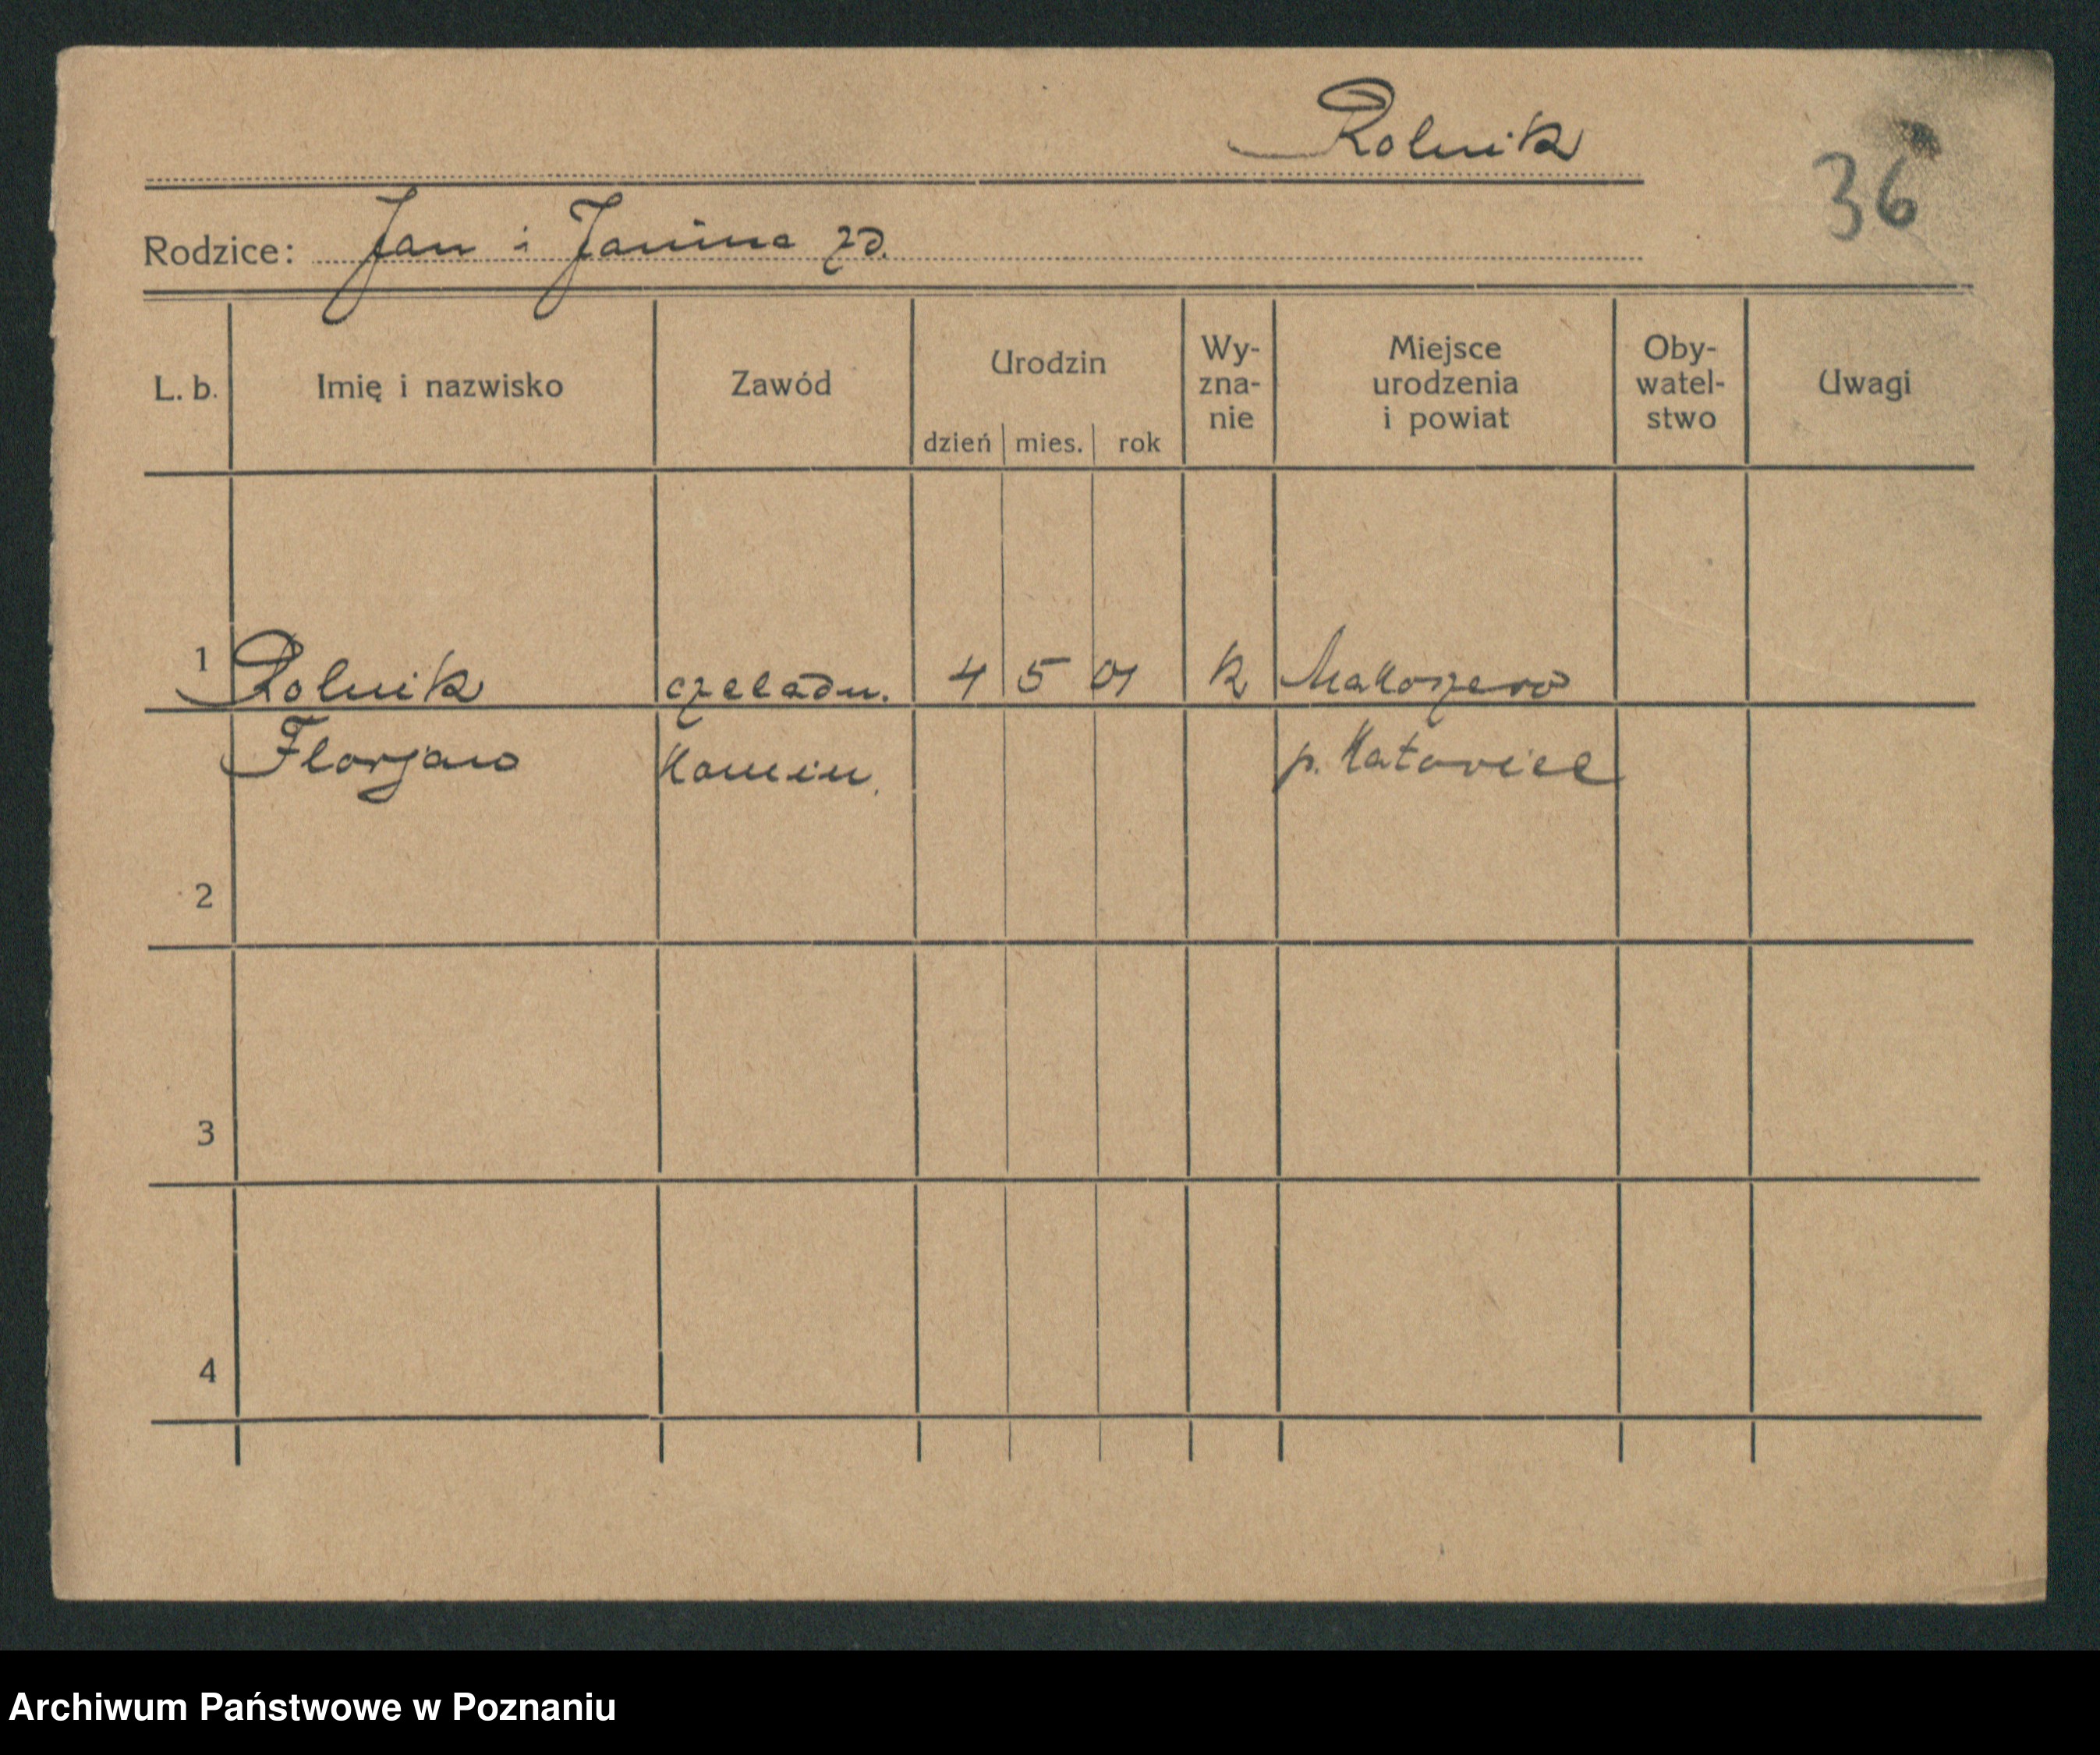 Rolnik
36
Rodzice: Jan i Janina zd.
L. b. Imię i nazwisko Zawód Urodzin dzień mies. rok Wy-zna-nie Miejsce urodzenia i powiat Oby-watel-stwo Uwagi
1 Rolnik czeladn. 4 5 01 k Makoszero
Florjan Komin. p. Katovice
2
3
4
Archiwum Państwowe w Poznaniu